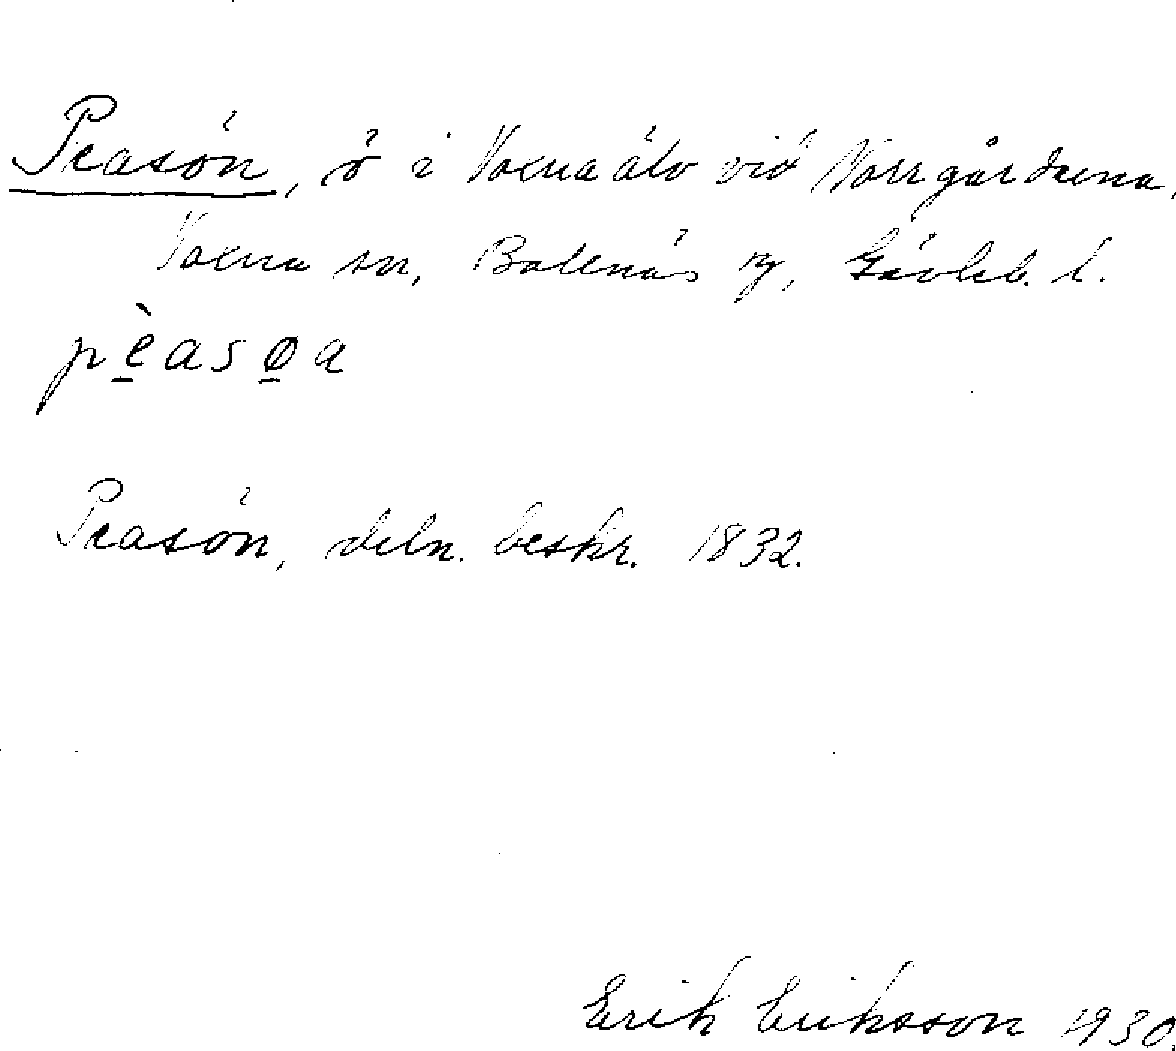 Peasön, ö i Voxna älv vid Norrgårdarna,
Voxna sn, Bollnäs Gävleb. l.
pè̱asø̱a
Peasön, deln. beskr. 1832.
Erik Eriksson 1930.